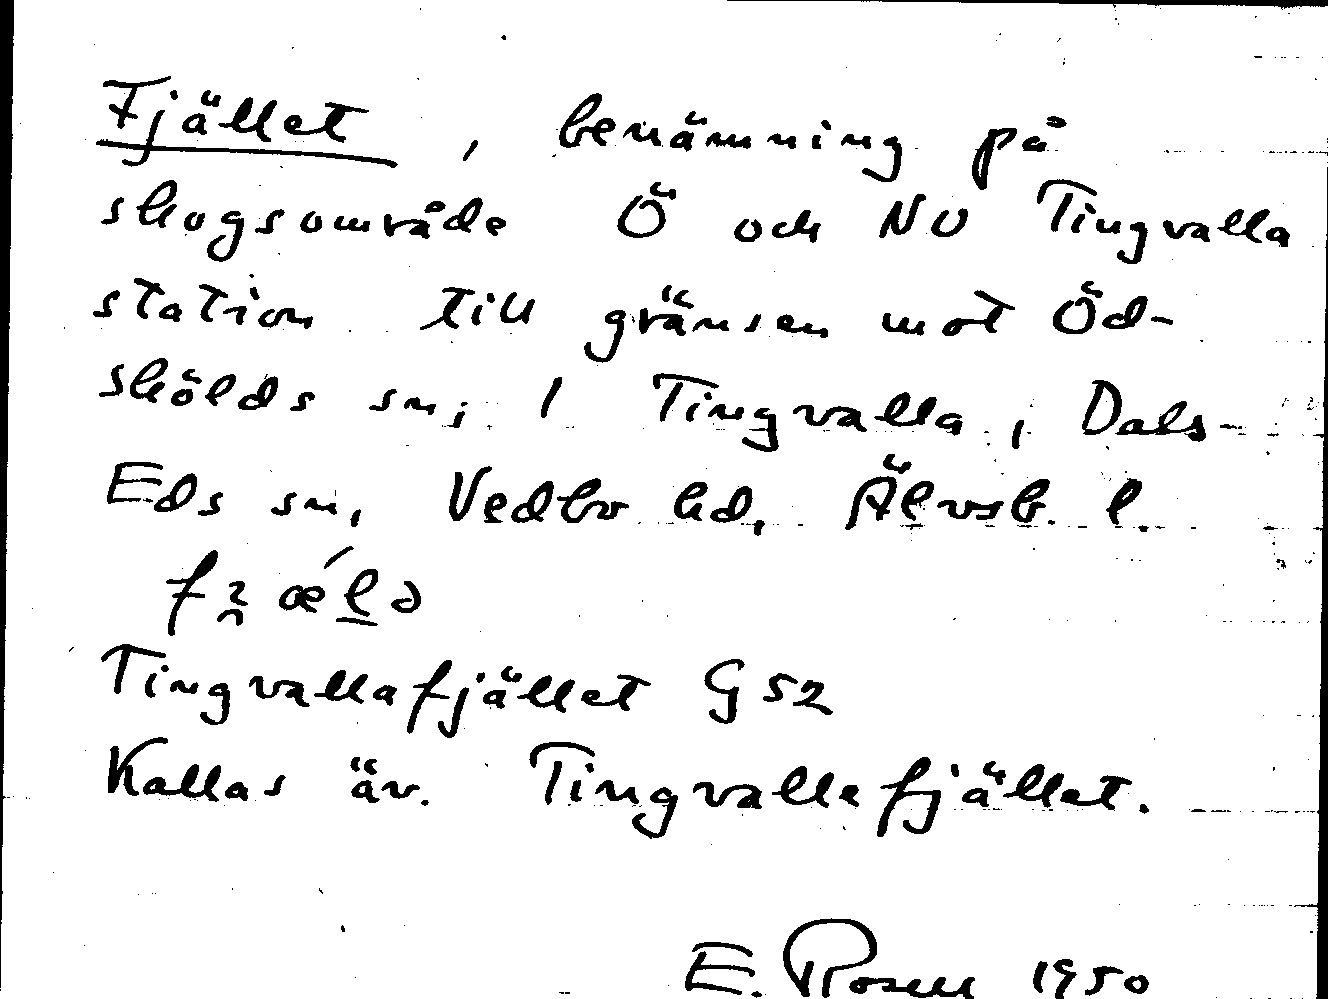 Fjället, benämning på
skogsområde Ö och NO Tingvalla
station till gränsen mot Öd-
skölds sn, 1 Tingvalla, Dals-
Eds sn, Vedbo hd, Älvsb. l.
Tingvallafjället G 52
Kallas äv. Tingvallafjället.
E. Rosell 1950